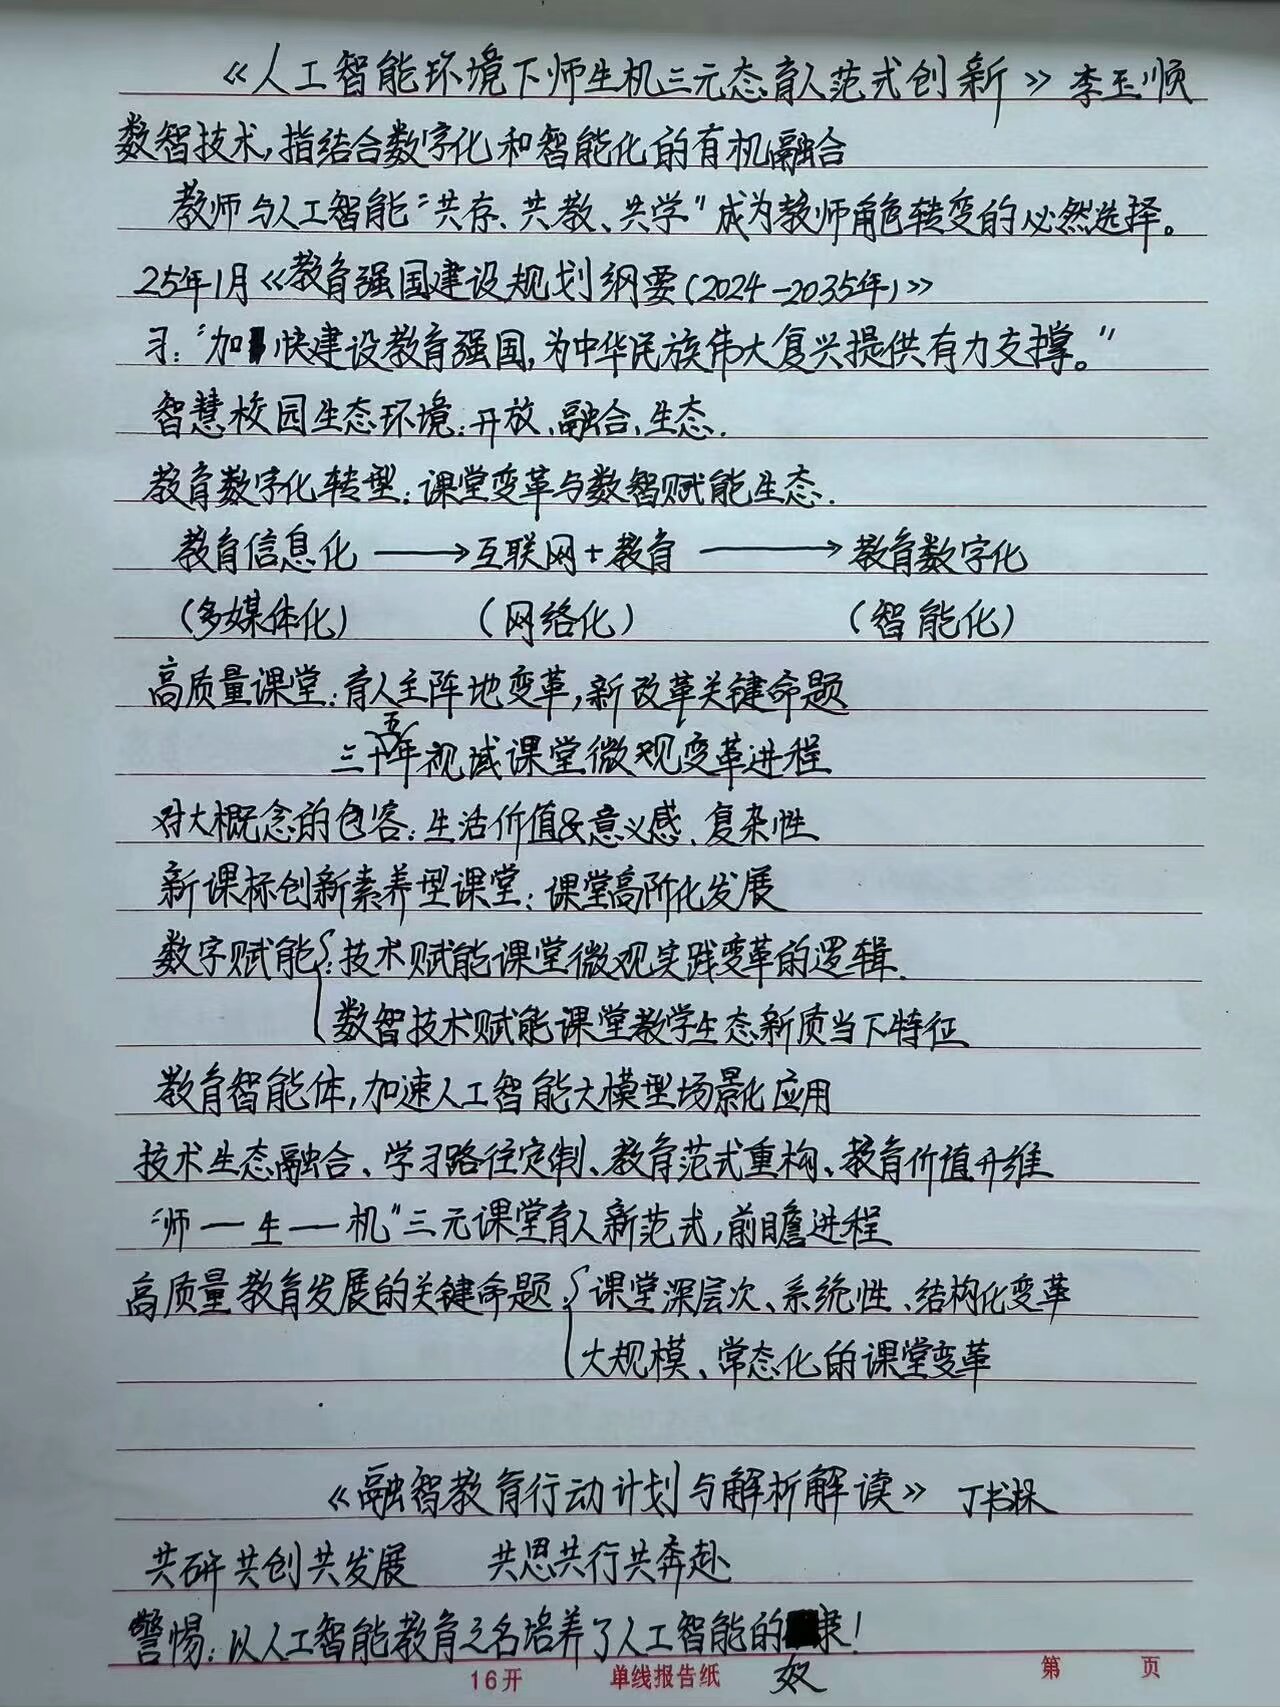 《人工智能环境下师生机三元态育人范式创新》李玉顺
数智技术，指结合数字化和智能化的有机融合
教师与人工智能“共存、共教、共学”成为教师角色转变的必然选择。
25年1月《教育强国建设规划纲要(2024-2035年)》
习：“加快建设教育强国，为中华民族伟大复兴提供有力支撑。”
智慧校园生态环境：开放、融合、生态.
教育数字化转型：课堂变革与数智赋能生态.
教育信息化 → 互联网+教育 → 教育数字化
(多媒体化) (网络化) (智能化)
高质量课堂：育人主阵地变革，新改革关键命题
三十五年视域课堂微观变革进程
对大概念的包容：生活价值&意义感、复杂性
新课标创新素养型课堂：课堂高阶化发展
数字赋能：技术赋能课堂微观实践变革的逻辑.
数智技术赋能课堂教学生态新质当下特征
教育智能体，加速人工智能大模型场景化应用
技术生态融合、学习路径定制、教育范式重构、教育价值升维
“师—生—机”三元课堂育人新范式，前瞻进程
高质量教育发展的关键命题：课堂深层次、系统性、结构化变革
大规模、常态化的课堂变革
《融智教育行动计划与解析解读》丁书林
共研共创共发展 共思共行共奔赴
警惕：以人工智能教育之名培养了人工智能的奴隶！
16开 单线报告纸 第 页